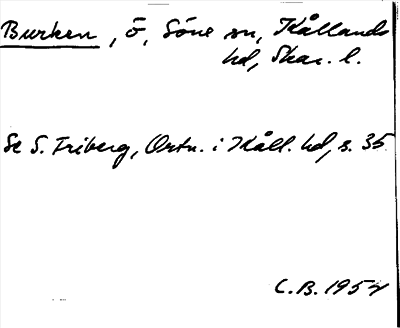 Burken, ö, Söne sn, Kållands
hd, Skar. l.
Se S. Friberg, Ortn. i Kåll. hd, s. 35
C.B. 1954